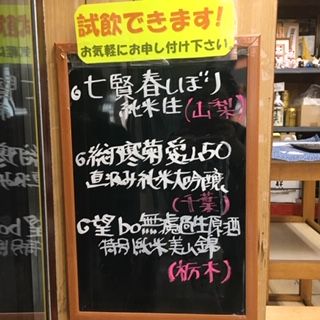 試飲できます!
お気軽にお申し付け下さい
七賢春しぼり
純米生
(山梨)
総乃寒菊愛山50
直汲み純米大吟醸
(千葉)
望bo無濾過生原酒
特別純米美山錦
(栃木)